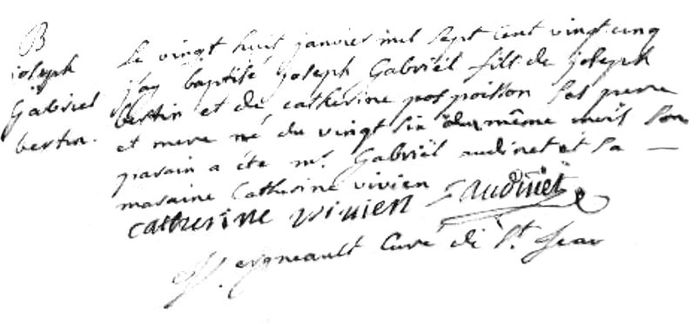 B
joseph
Gabriel
bertin.
Le vingt huit janvier mil sept cent vingt cinq
j'ay baptisé joseph Gabriël fils de joseph
bertin et de catherine poispoisson ses pere
et mere né du vingt six du même mois son
parain a été mr. Gabriël audinet et sa —
maraine Catherine vivien
catherine vivien Gaudinët
Curé de St. Jean